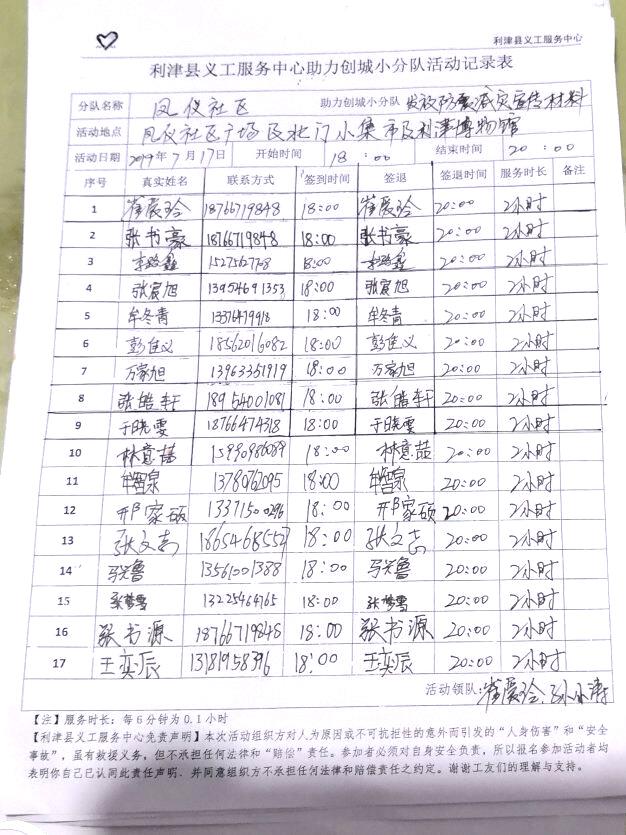 利津县义工服务中心
利津县义工服务中心助力创城小分队活动记录表
分队名称 凤仪社区 助力创城小分队 发放防震减灾宣传材料
活动地点 凤仪社区广场及北门小集市及利津博物馆
活动日期 2019年7月17日 开始时间 18:00 结束时间 20:00
序号 真实姓名 联系方式 签到时间 签退 签退时间 服务时长 备注
1 崔爱玲 18766719848 18:00 崔爱玲 20:00 2小时
2 张书豪 18766719848 18:00 张书豪 20:00 2小时
3 李路鑫 15275627768 18:00 李路鑫 20:00 2小时
4 张宸旭 13954691353 18:00 张宸旭 20:00 2小时
5 牟冬青 13376479918 18:00 牟冬青 20:00 2小时
6 彭佳义 18562016082 18:00 彭佳义 20:00 2小时
7 万家旭 13963351919 18:00 万家旭 20:00 2小时
8 张皓轩 18954001081 18:00 张皓轩 20:00 2小时
9 于晓雯 18766474318 18:00 于晓雯 20:00 2小时
10 林意喆 15990986089 18:00 林意喆 20:00 2小时
11 13780762095 18:00 20:00 2小时
12 邢家硕 13371500296 18:00 邢家硕 20:00 2小时
13 张文志 18654685527 18:00 张文志 20:00 2小时
14 马兴鲁 13561001388 18:00 马兴鲁 20:00 2小时
15 张梦雪 13225464765 18:00 张梦雪 20:00 2小时
16 张书源 18766719848 18:00 张书源 20:00 2小时
17 王奕辰 13181958396 18:00 王奕辰 20:00 2小时
活动领队:崔爱玲、孙小涛
【注】服务时长:每6分钟为0.1小时
【利津县义工服务中心免责声明】本次活动组织方对人为原因或不可抗担性的意外而引发的“人身伤害”和“安全
事故”,虽有救援义务,但不承担任何法律和“赔偿”责任。参加者必须对自身安全负责,所以报名参加活动者均
表明你自己已认同此责任声明,并同意组织方不承担任何法律和赔偿责任之约定。谢谢工友们的理解与支持。